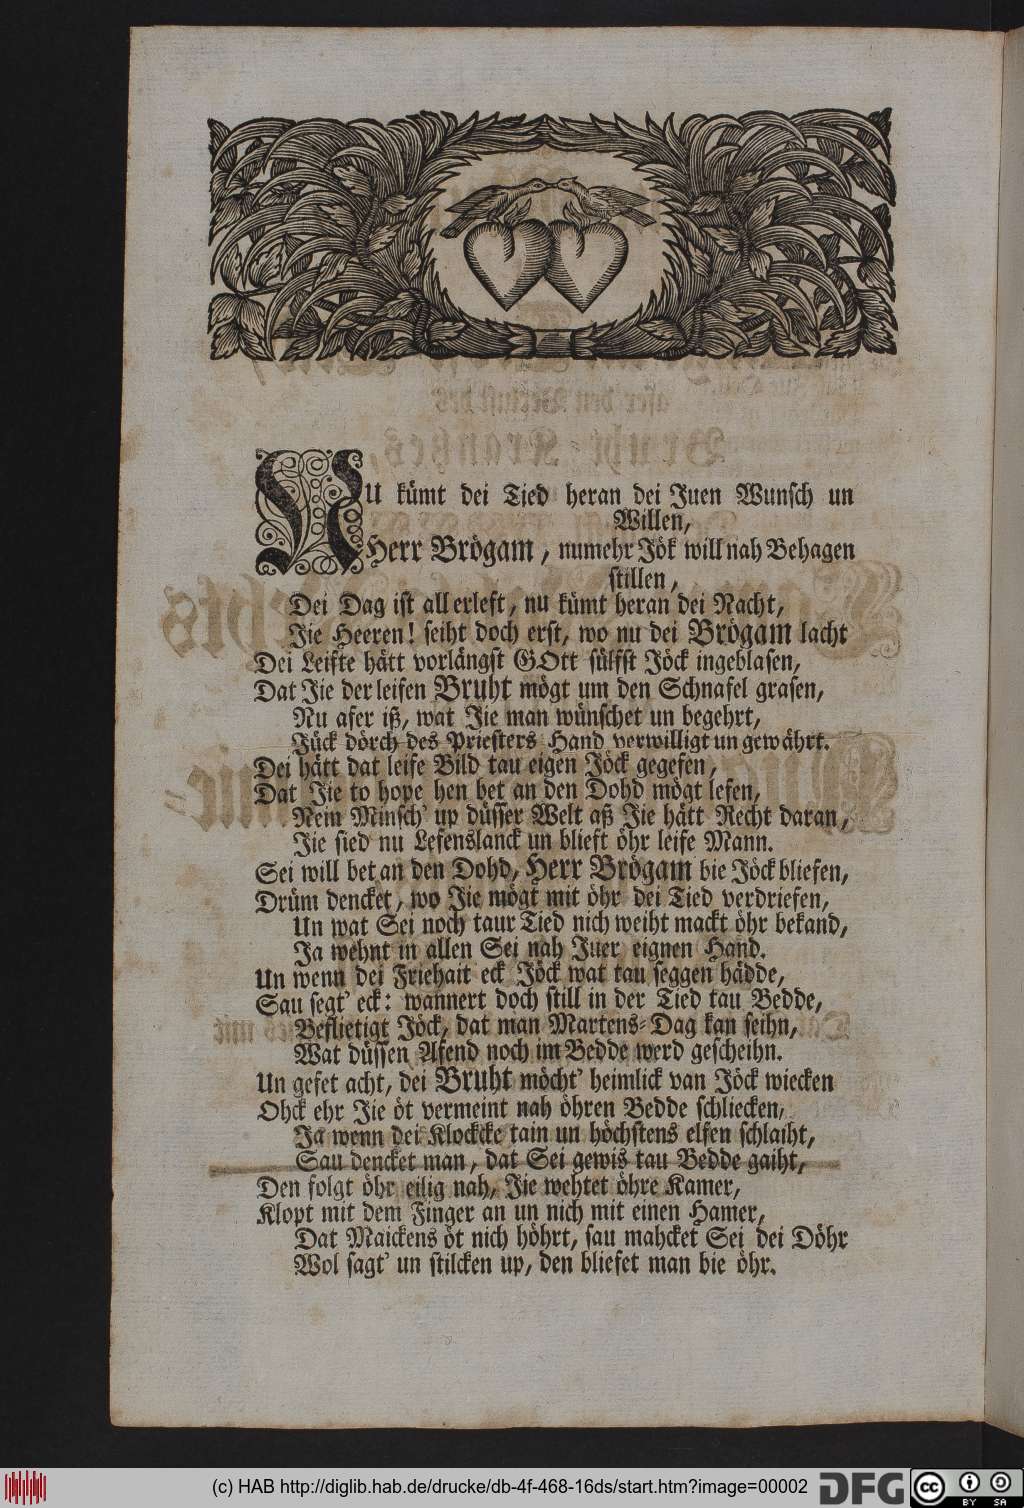 NU kümt dei Tied heran dei Juen Wunsch un
Willen,
Herr Brögam, numehr Jök will nah Behagen
stillen,
Dei Dag ist all erleft, nu kümt heran dei Nacht,
Jie Heeren! seiht doch erst, wo nu dei Brögam lacht
Dei Leifte hätt vorlängst GOtt sülfst Jöck ingeblasen,
Dat Jie der leifen Bruht mögt um den Schnafel grasen,
Nu afer iß, wat Jie man wünschet un begehrt,
Jück dörch des Priesters Hand verwilligt un gewährt.
Dei hätt dat leife Bild tau eigen Jöck gegefen,
Dat Jie to hope hen bet an den Dohd mögt lefen,
Nein Minsch' up düsser Welt aß Jie hätt Recht daran,
Jie sied nu Lefenslanck un blieft öhr leife Mann.
Sei will bet an den Dohd, Herr Brögam bie Jöck bliefen,
Drüm dencket, wo Jie mögt mit öhr dei Tied verdriefen,
Un wat Sei noch taur Tied nich weiht mackt öhr bekand,
Ja wehnt in allen Sei nah Juer eignen Hand.
Un wenn dei Friehait eck Jöck wat tau seggen hädde,
Sau segt' eck: wannert doch still in der Tied tau Bedde,
Beflietigt Jöck, dat man Martens-Dag kan seihn,
Wat düssen Afend noch im Bedde werd gescheihn.
Un gefet acht, dei Bruht möcht' heimlick van Jöck wiecken
Ohck ehr Jie öt vermeint nah öhren Bedde schliecken,
Ja wenn dei Klockcke tain un höchstens elfen schlaiht,
Sau dencket man, dat Sei gewis tau Bedde gaiht,
Den folgt öhr eilig nah, Jie wehtet öhre Kamer,
Klopt mit dem Finger an un nich mit einen Hamer,
Dat Maickens öt nich höhrt, sau mahcket Sei dei Döhr
Wol sagt' un stilcken up, den bliefet man bie öhr.
(c) HAB http://diglib.hab.de/drucke/db-4f-468-16ds/start.htm?image=00002
DFG
cc BY SA